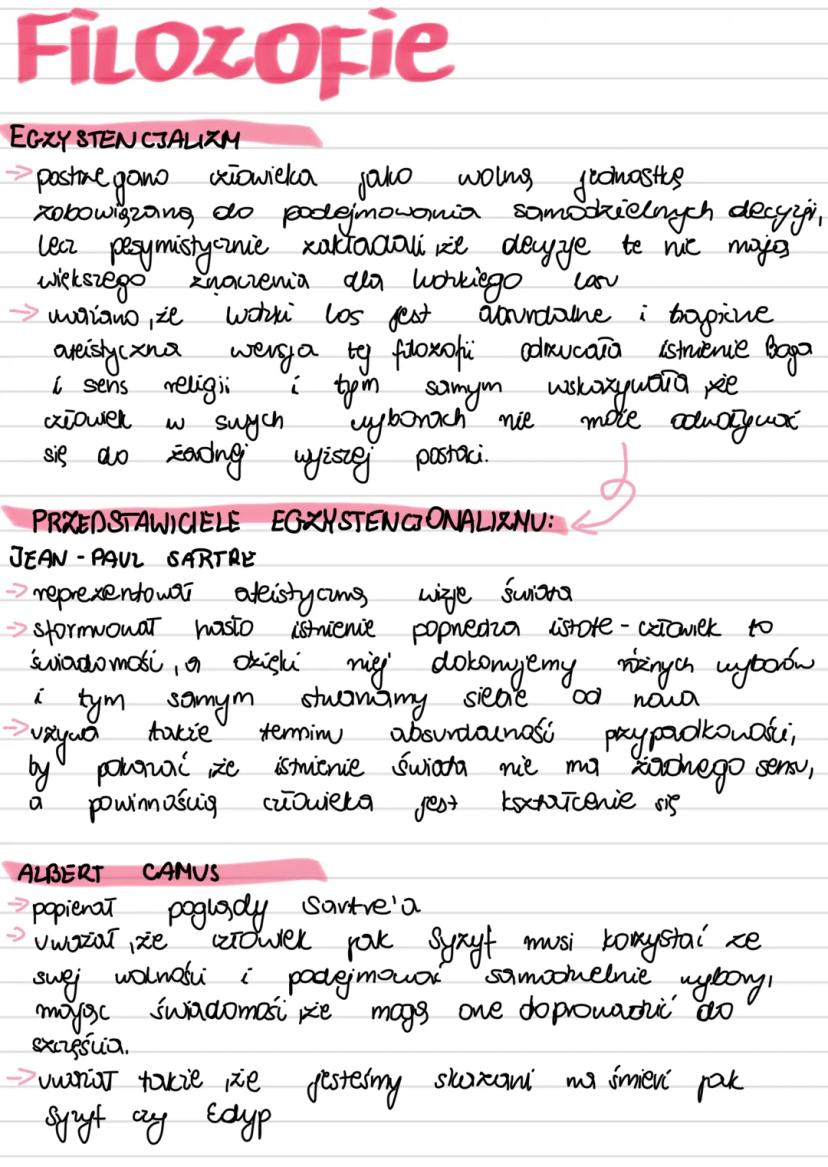 Filozofie
EGZYSTENCJALIZM
→ postrzegano człowieka jako wolną jednostkę
zobowiązaną do podejmowania samodzielnych decyzji,
lecz pesymistycznie zakładali, że decyzje te nie mają
większego znaczenia dla ludzkiego losu
→ uważano, że ludzki los jest absurdalne i tragiczne
ateistyczna wersja tej filozofii odrzucała istnienie Boga
i sens religii i tym samym wskazywała, że
człowiek w swych wyborach nie może odwoływać
się do żadnej wyższej postaci.
PRZEDSTAWICIELE EGZYSTENCJONALIZMU:
JEAN-PAUL SARTRE
→ reprezentował ateistyczną wizje świata
→ sformuował hasło istnienie poprzedza istote - człowiek to
świadomość, a dzięki niej dokonujemy różnych wyborów
i tym samym stwarzamy siebie od nowa
→ używa także terminu absurdalność przypadkowości,
by pokazać, że istnienie świata nie ma żadnego sensu,
a powinnością człowieka jest kształcenie się
ALBERT CAMUS
→ popierał poglądy Sartre'a
→ uważał, że człowiek jak Syzyf musi korzystać ze
swej wolności i podejmować samodzielnie wybory,
mając świadomość, że mogą one doprowadzić do
szczęścia.
→ uważał także, że jesteśmy skazani na śmierć jak
Syzyf czy Edyp